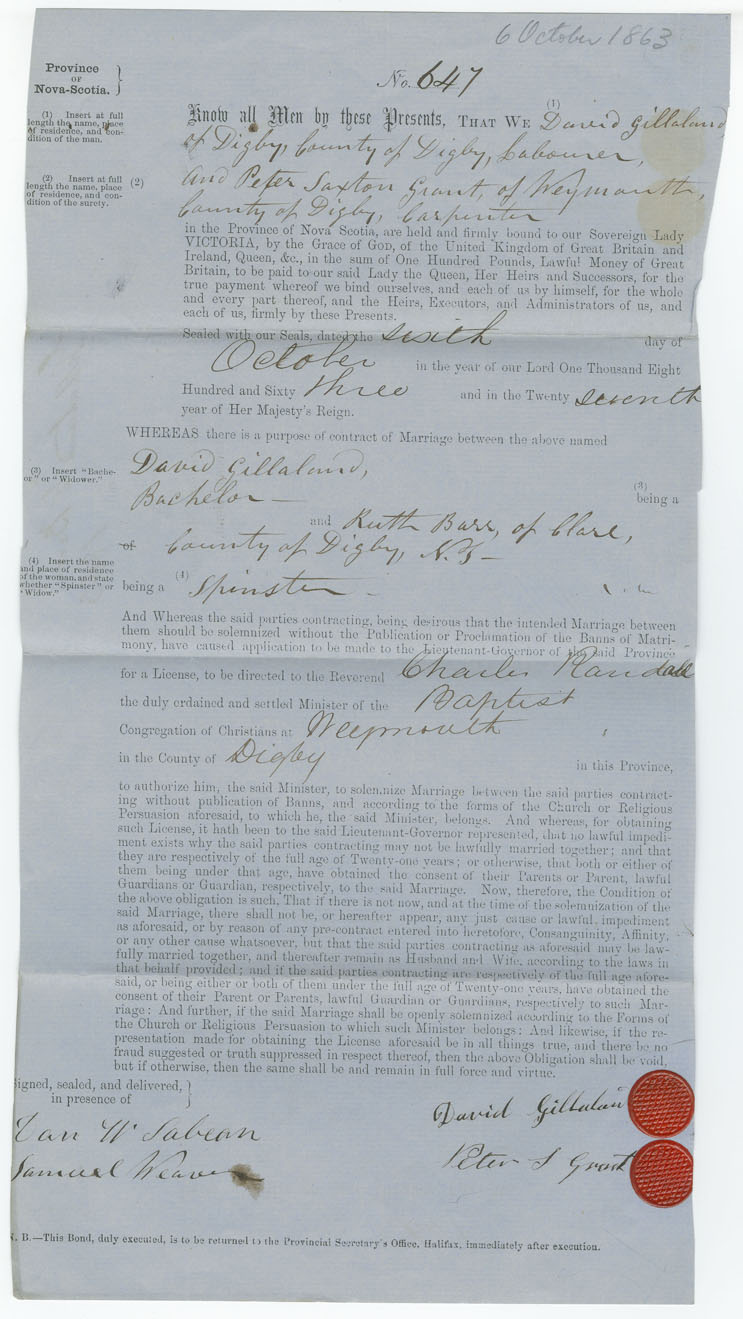 6 October 1863
Province
OF
Nova-Scotia.
No. 647
(1) Insert at full
length the name, place
of residence, and con-
dition of the man.
(1)
Know all Men by these Presents, THAT WE David Gillaland
of Digby, County of Digby, Labourer,
(2) Insert at full
length the name, place
of residence, and con-
dition of the surety.
(2) and Peter Saxton Grant, of Weymouth,
County of Digby, Carpenter
in the Province of Nova Scotia, are held and firmly bound to our Sovereign Lady
VICTORIA, by the Grace of GOD, of the United Kingdom of Great Britain and
Ireland, Queen, &c., in the sum of One Hundred Pounds, Lawful Money of Great
Britain, to be paid to our said Lady the Queen, Her Heirs and Successors, for the
true payment whereof we bind ourselves, and each of us by himself, for the whole
and every part thereof, and the Heirs, Executors, and Administrators of us, and
each of us, firmly by these Presents.
Sealed with our Seals, dated the sixth day of
October in the year of our Lord One Thousand Eight
Hundred and Sixty three and in the Twenty seventh
year of Her Majesty's Reign.
WHEREAS there is a purpose of contract of Marriage between the above named
David Gillaland,
(3) Insert "Bache-
or" or "Widower."
Bachelor (3) being a
and Ruth Barr, of Clare,
of County of Digby, N.S.
(4) Insert the name
and place of residence
of the woman, and state
whether "Spinster" or
"Widow."
being a (4) Spinster
And Whereas the said parties contracting, being desirous that the intended Marriage between
them should be solemnized without the Publication or Proclamation of the Banns of Matri-
mony, have caused application to be made to the Lieutenant-Governor of the said Province
for a License, to be directed to the Reverend Charles Randall
the duly ordained and settled Minister of the Baptist
Congregation of Christians at Weymouth
in the County of Digby in this Province,
to authorize him, the said Minister, to solemnize Marriage between the said parties contract-
ing without publication of Banns, and according to the forms of the Church or Religious
Persuasion aforesaid, to which he, the said Minister, belongs. And whereas, for obtaining
such License, it hath been to the said Lieutenant-Governor represented, that no lawful impedi-
ment exists why the said parties contracting may not be lawfully married together; and that
they are respectively of the full age of Twenty-one years; or otherwise, that both or either of
them being under that age, have obtained the consent of their Parents or Parent, lawful
Guardians or Guardian, respectively, to the said Marriage. Now, therefore, the Condition of
the above obligation is such, That if there is not now, and at the time of the solemnization of the
said Marriage, there shall not be, or hereafter appear, any just cause or lawful impediment
as aforesaid, or by reason of any pre-contract entered into heretofore, Consanguinity, Affinity,
or any other cause whatsoever, but that the said parties contracting as aforesaid may be law-
fully married together, and thereafter remain as Husband and Wife, according to the laws in
that behalf provided; and if the said parties contracting are respectively of the full age afore-
said, or being either or both of them under the full age of Twenty-one years, have obtained the
consent of their Parent or Parents, lawful Guardian or Guardians, respectively to such Mar-
riage: And further, if the said Marriage shall be openly solemnized according to the Forms of
the Church or Religious Persuasion to which such Minister belongs: And likewise, if the re-
presentation made for obtaining the License aforesaid be in all things true, and there be no
fraud suggested or truth suppressed in respect thereof, then the above Obligation shall be void,
but if otherwise, then the same shall be and remain in full force and virtue.
igned, sealed, and delivered,
in presence of
W Sabean
Samuel Weaver
David Gillalan
Peter S Grant
. B.—This Bond, duly executed, is to be returned to the Provincial Secretary's Office, Halifax, immediately after execution.